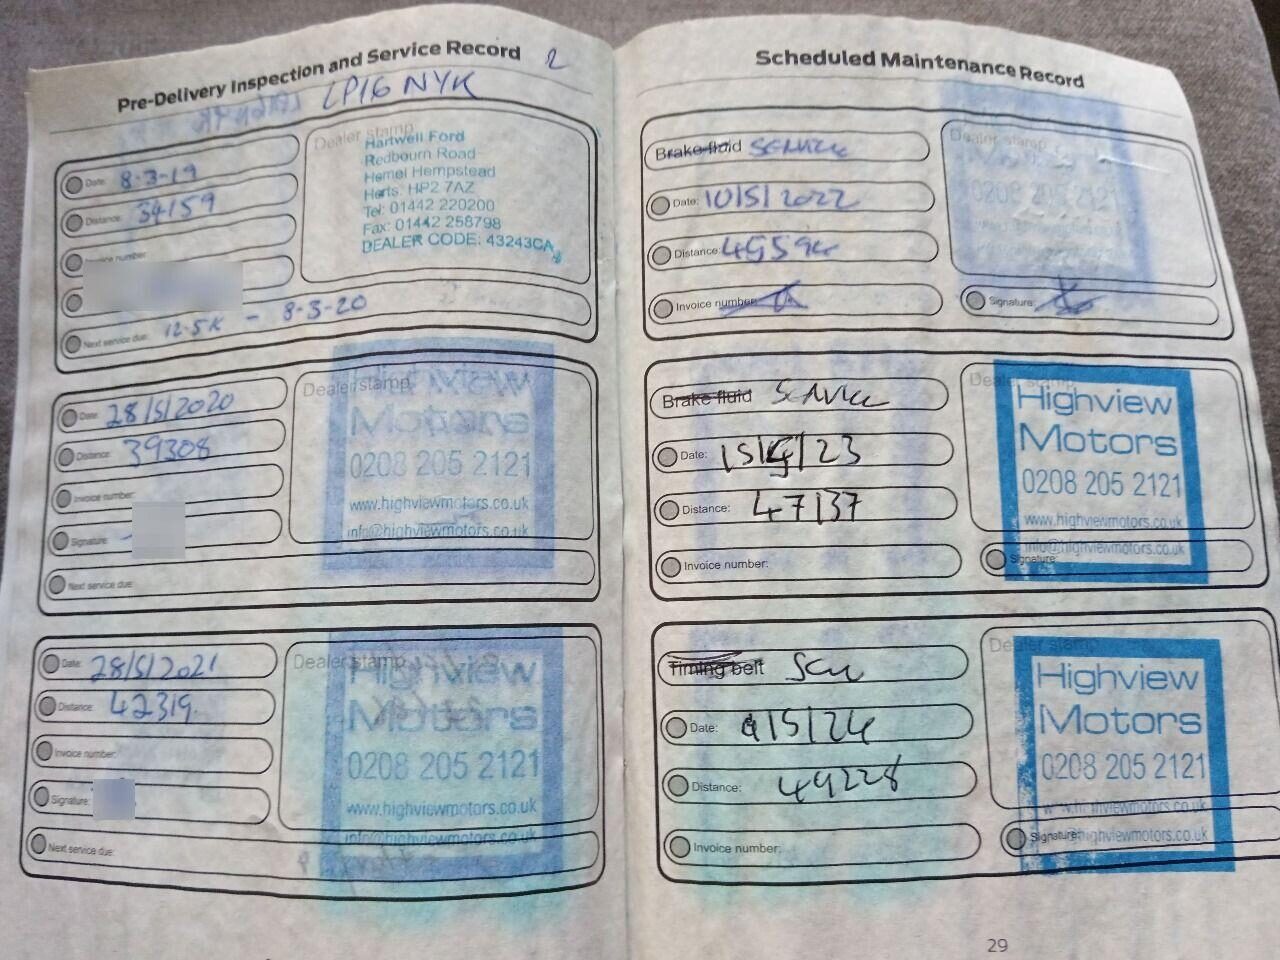 Pre-Delivery Inspection and Service Record 2
LP16 NYK
Date: 8-3-19
Distance: 34159
Invoice number
Next service due: 12.5K - 8-3-20
Dealer stamp
Hartwell Ford
Redbourn Road
Hemel Hempstead
Herts. HP2 7AZ
Tel: 01442 220200
Fax: 01442 258798
DEALER CODE: 43243CA
Date: 28/5/2020
Distance: 39308
Invoice number:
Signature:
Next service due:
Dealer stamp
Motors
0208 205 2121
www.highviewmotors.co.uk
info@highviewmotors.co.uk
Date: 28/5/2021
Distance: 42319
Invoice number:
Signature:
Next service due:
Dealer stamp
Highview
Motors
0208 205 2121
www.highviewmotors.co.uk
info@highviewmotors.co.uk
Scheduled Maintenance Record
Brake fluid Service
Date: 10/5/2022
Distance: 45594
Invoice number:
Dealer stamp
0208 205 2121
Signature:
Brake fluid Service
Date: 15/5/23
Distance: 47137
Invoice number:
Dealer stamp
Highview
Motors
0208 205 2121
www.highviewmotors.co.uk
info@highviewmotors.co.uk
Signature:
Timing belt
Date: 9/5/24
Distance: 49228
Invoice number:
Dealer stamp
Highview
Motors
0208 205 2121
www.highviewmotors.co.uk
Signature:
29